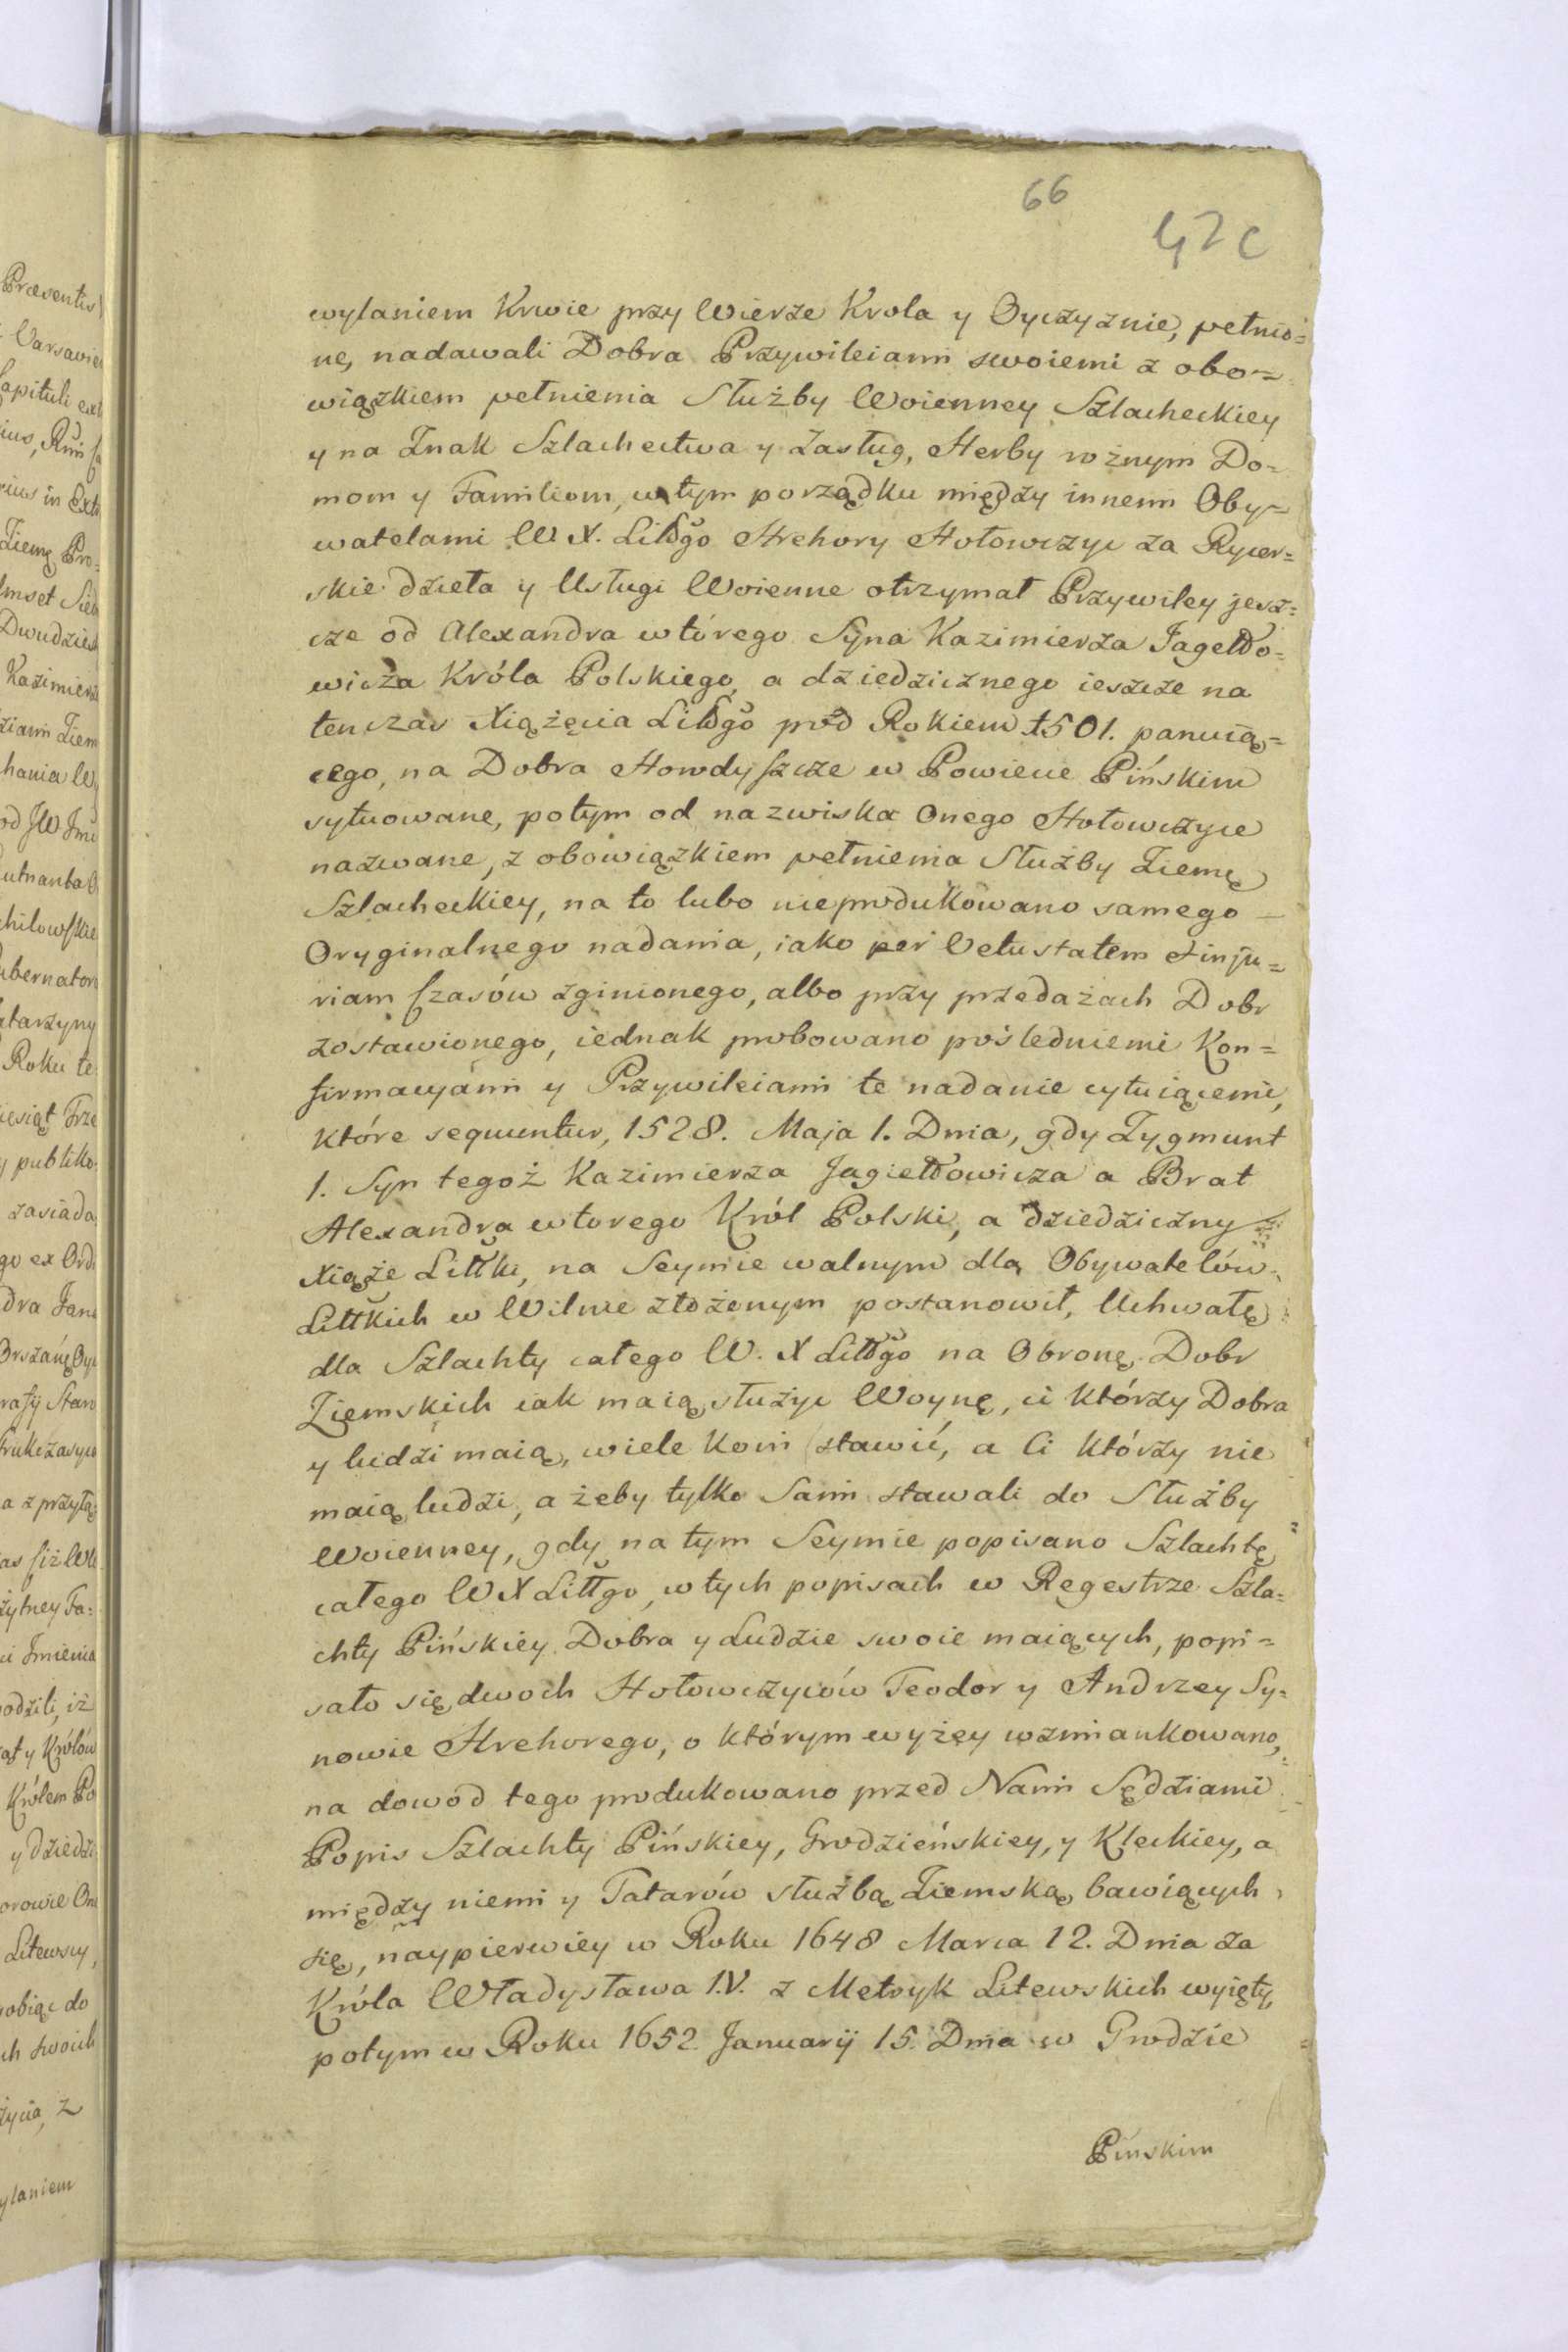 66
42c
wylaniem Krwie przy Wierze Krola y Oyczyznie, pełnio=
ne, nadawali Dobra Przywileiami swoiemi z obo=
wiązkiem pełnienia Służby Woienney Szlacheckiey
y na Znak Szlachectwa y Zasług, Herby rożnym Do=
mom y Familiom, w tym porządku między innemi Oby=
watelami W X. Littgo Hrehory Hołowczyc za Rycer=
skie dzieła y Usługi Woienne otrzymał Przywiley jesz=
cze od Alexandra wtórego Syna Kazimierza Jagełło=
wicza Króla Polskiego, a dziedzicznego ieszcze na
tenczas Xiążęcia Littgo pod Rokiem 1501. panuią=
cego, na Dobra Howdyszcze w Powiecie Pińskim
sytuowane, potym od nazwiska Onego Hołowczyce
nazwane, z obowiązkiem pełnienia Służby Ziemę
Szlacheckiey, na to lubo nieprodukowano samego —
Oryginalnego nadania, iako per Vetustatem et inju=
riam Czasów zginionego, albo przy przedażach Dobr
zostawionego, iednak probowano pośledniemi Kon=
firmacyami y Przywileiami te nadanie cytuiącemi,
które sequuntur, 1528. Maja 1. Dnia, gdy Zygmunt
1. Syn tegoż Kazimierza Jagiełłowicza a Brat
Alexandra wtorego Król Polski, a dziedziczny
Xiąże Littki, na Seymie walnym dla Obywatelów
Littkich w Wilnie złożonym postanowił, Uchwałę
dla Szlachty całego W. X Littgo na Obronę Dobr
Ziemskich iak maią służyc Woynę, ci którzy Dobra
y ludzi maią, wiele Koni stawić, a Ci którzy nie
maią ludzi, a żeby tylko Sami stawali do Służby
Woienney, gdy na tym Seymie popisano Szlachtę
całego W X Littgo, w tych popisach w Regestrze Szla=
chty Pińskiey Dobra y Ludzie swoie maiących, popi=
sało się dwoch Hołowczyców Teodor y Andrzey Sy=
nowie Hrehorego, o którym wyżey wzmiankowano,
na dowod tego produkowano przed Nami Sędziami
Popis Szlachty Pińskiey, Grodzieńskiey, y Kleckiey, a
między niemi y Tatarów służbą Ziemską bawiących
się, naypierwiey w Roku 1648 Marca 12. Dnia za
Króla Władysława I.V. z Metryk Litewskich wyięty,
potym w Roku 1652. Januarij 15. Dnia w Grodzie
Pinskim